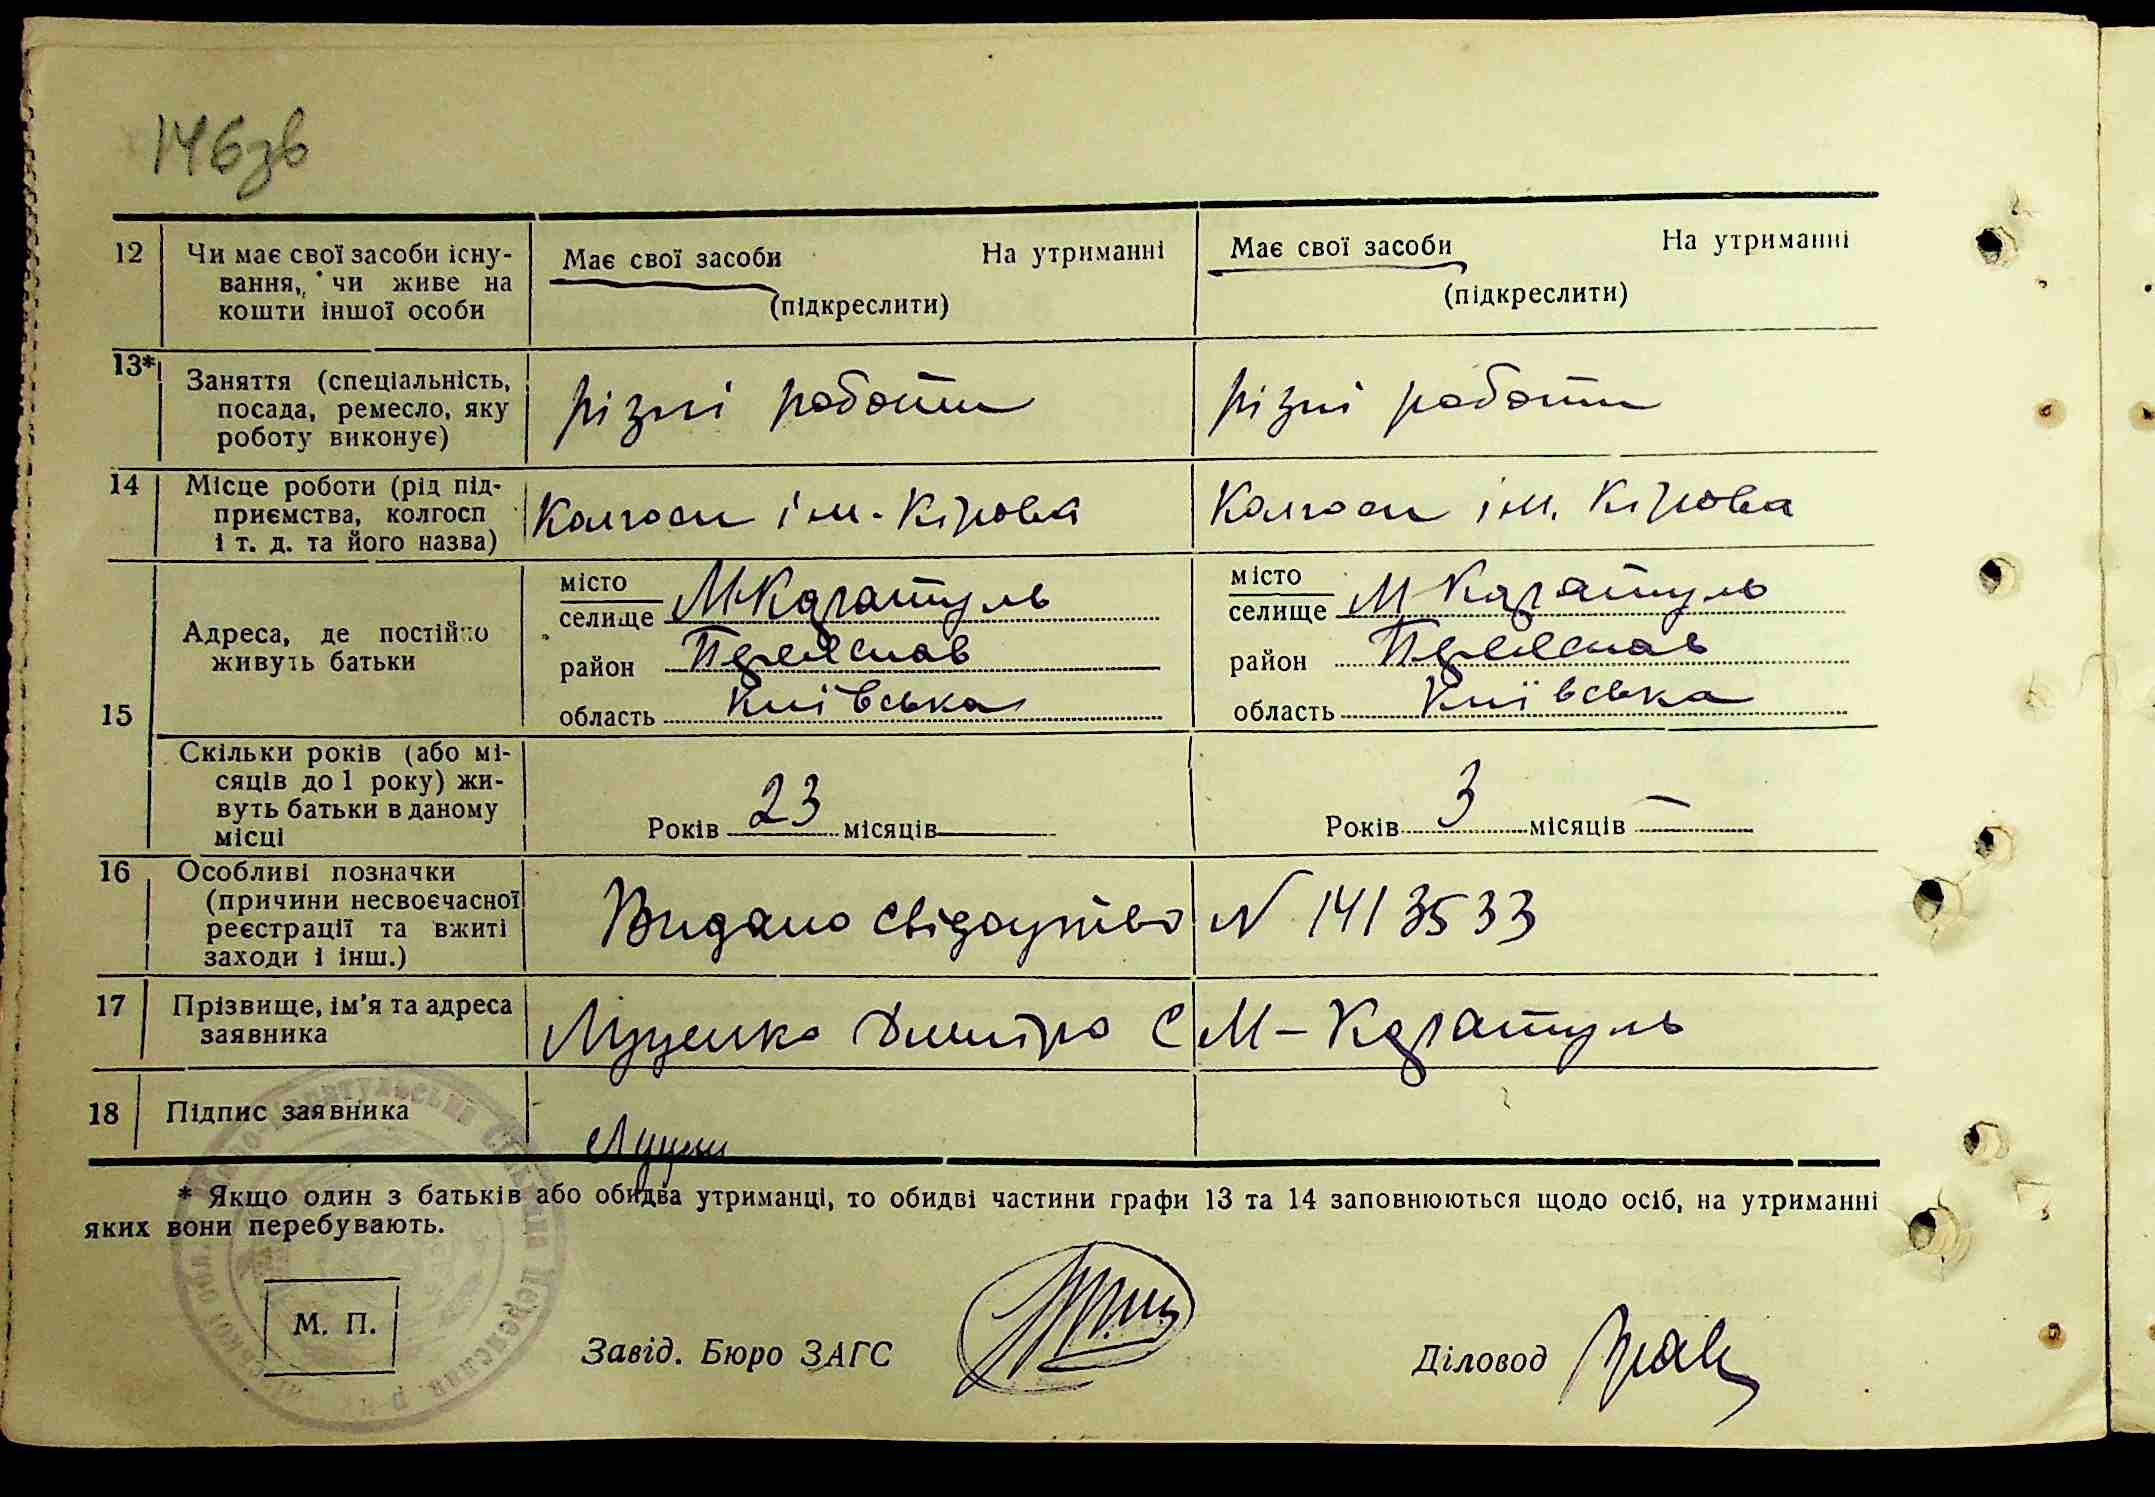 146зв
12 Чи має свої засоби існу- Має свої засоби На утриманні Має свої засоби На утриманні
вання, чи живе на
кошти іншої особи (підкреслити) (підкреслити)
13* Заняття (спеціальність,
посада, ремесло, яку різні роботи різні роботи
роботу виконує)
14 Місце роботи (рід під-
приємства, колгосп Колгосп ім. Кірова Колгосп ім. Кірова
і т. д. та його назва)
15 Адреса, де постійно
живуть батьки
місто
селище М Каратуль
район Переяслав
область Київська
місто
селище М Каратуль
район Переяслав
область Київська
Скільки років (або мі-
сяців до 1 року) жи-
вуть батьки в даному
місці Років 23 місяців Років 3 місяців —
16 Особливі позначки
(причини несвоєчасної
реєстрації та вжиті Видано свідоцтво N 1413533
заходи і інш.)
17 Прізвище, ім'я та адреса Луценко Дмитро С М – Каратуль
заявника
18 Підпис заявника
Луцен
* Якщо один з батьків або обидва утриманці, то обидві частини графи 13 та 14 заповнюються щодо осіб, на утриманні
яких вони перебувають.
М. П.
Завід. Бюро ЗАГС Діловод